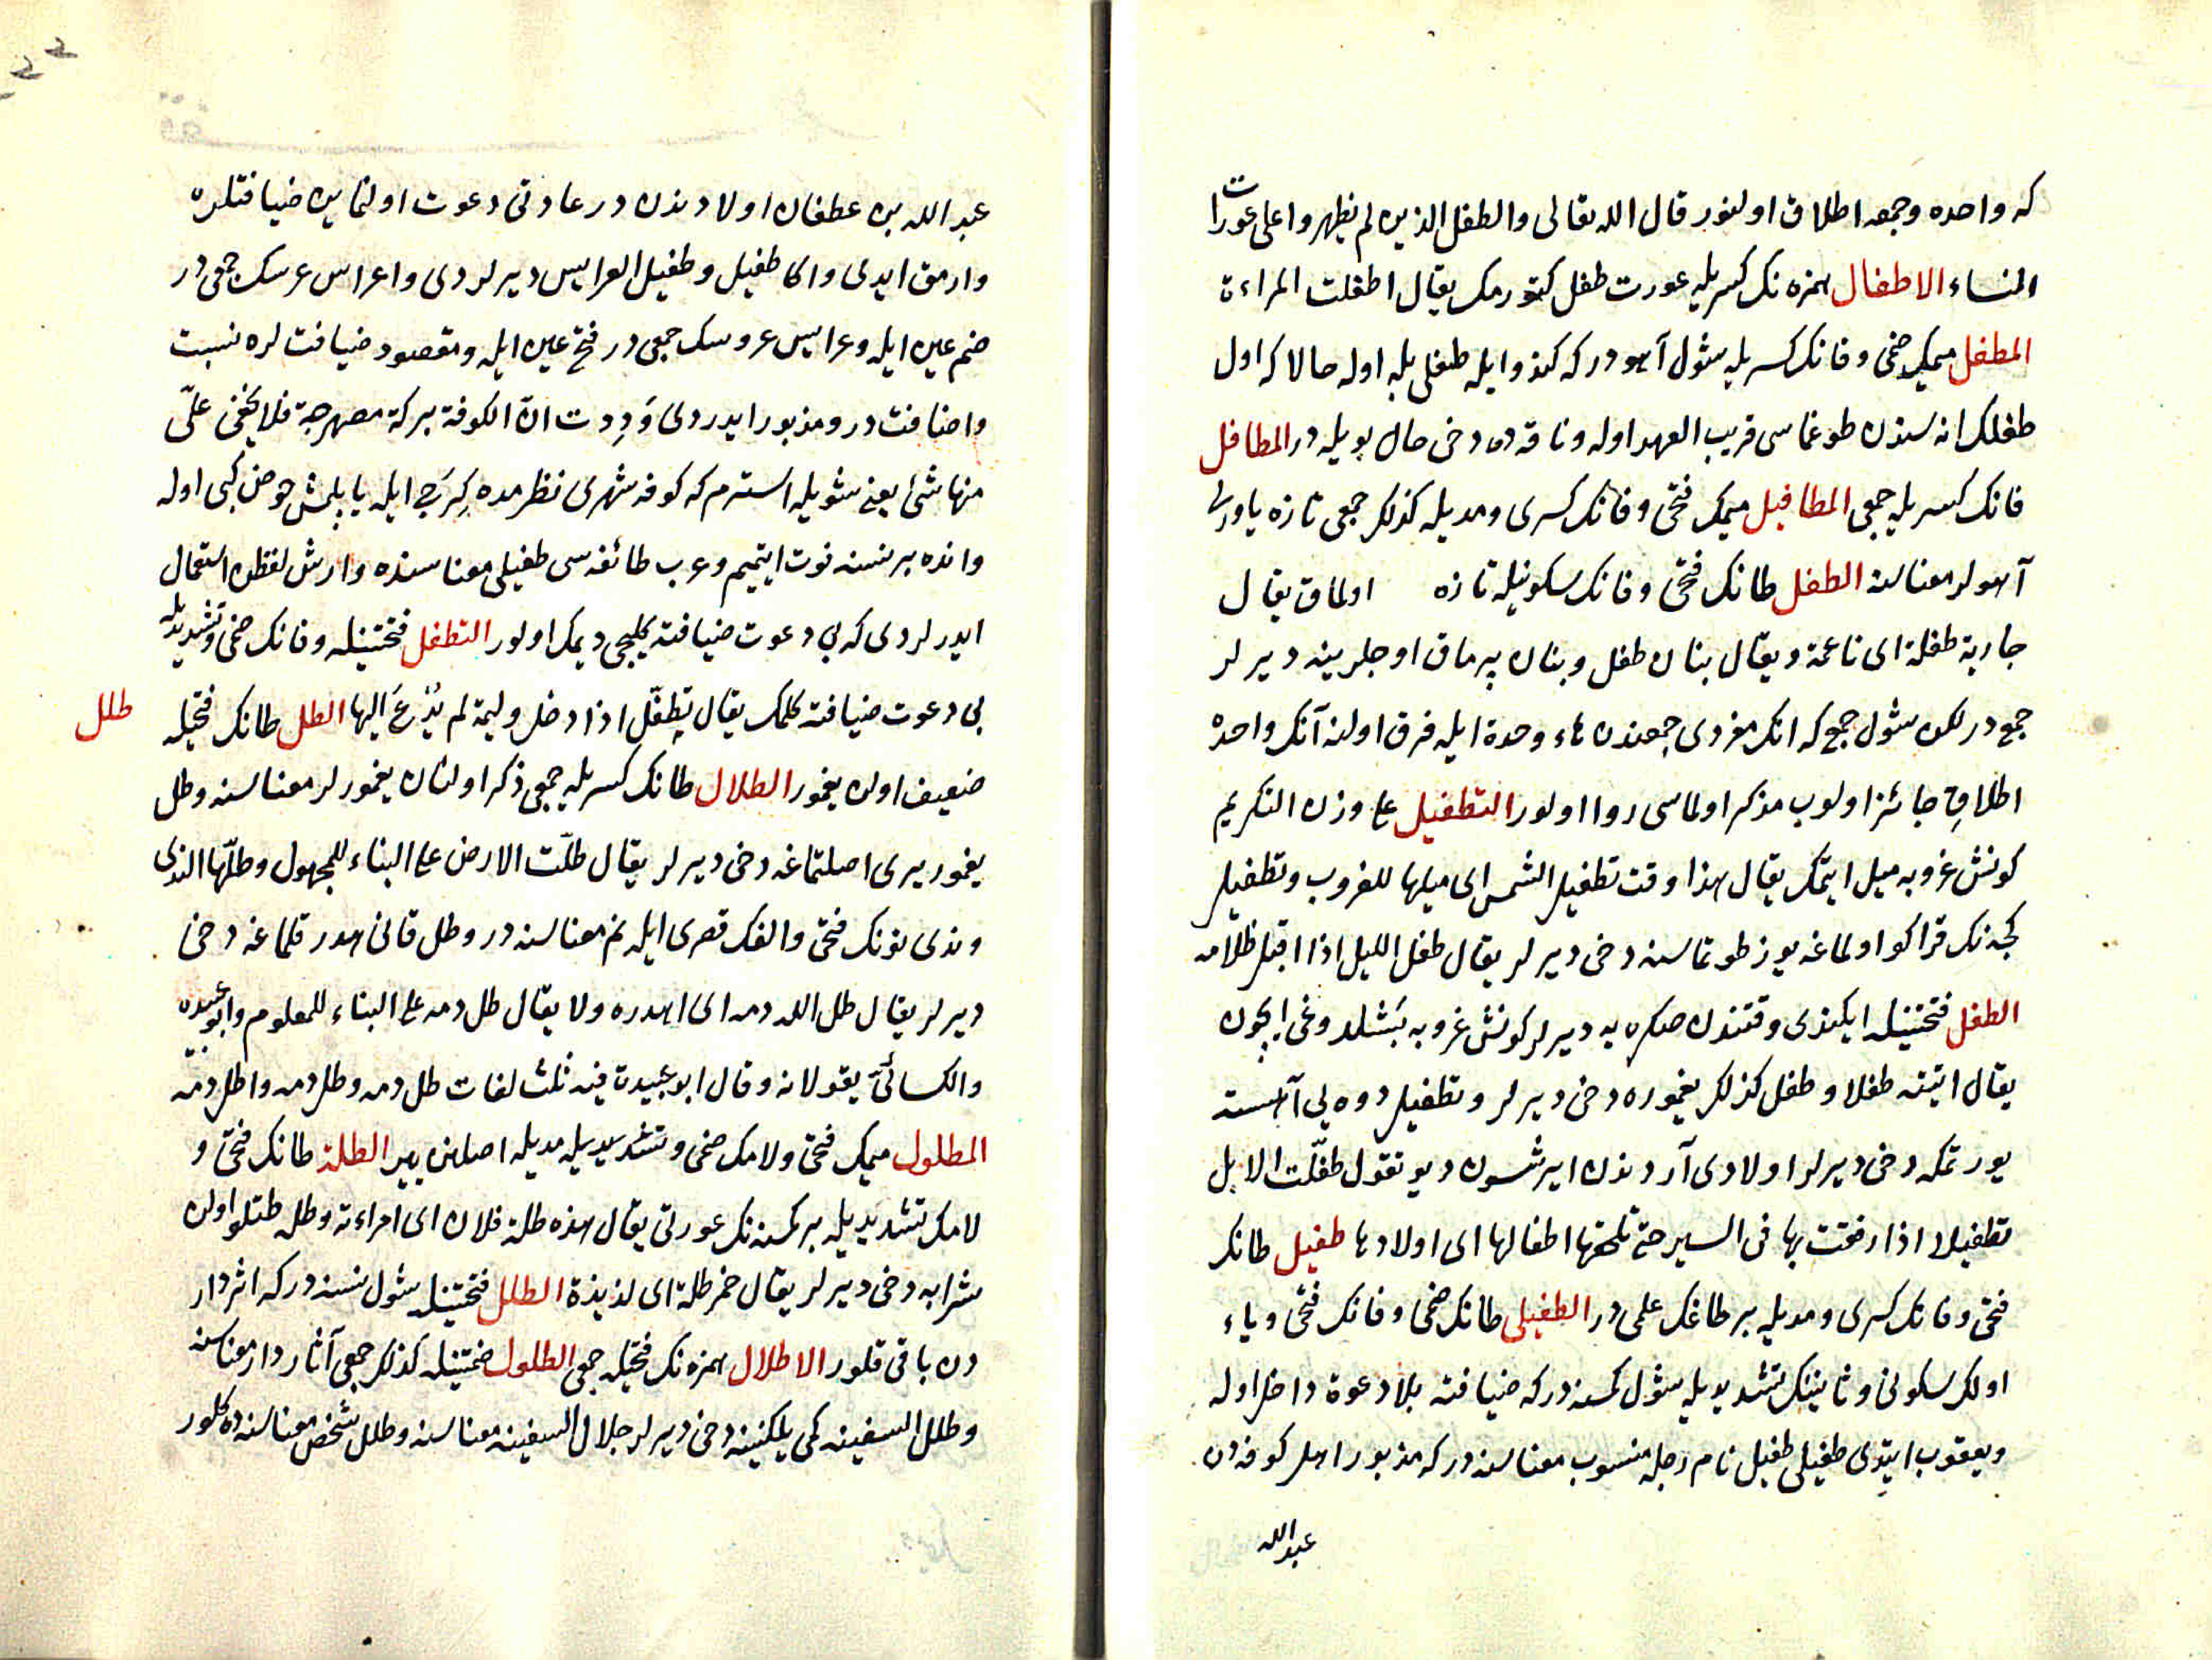 كه واحده وجمعه اطلاق اولنور قال الله تعالى والطفل الذين لم يظهروا على عورات
النساء الاطفال همزه نك كسريله عورت طفل كتورمك يقال اطفلت المراءة
المطفل ميمك ضمى وفانك كسريله شول آهودر كه كندو ايله طفلى بله اوله حالا كه اول
طفلك انه سندن طوغماسى قريب العهد اوله وناقه ده دخى حال بويله در المطافل
فانك كسريله جمعى المطافيل ميمك فتحى وفانك كسرى ومديله كذلك جمعى تازه ياورلى
آهولر معناسنه الطفل طانك فتحى وفانك سكونيله تازه اولماق يقال
جارية طفلة اى ناعمة ويقال بنان طفل وبنان پرماق اوجلرينه ديرلر
جمع در لكن شول جمع كه انك مفردى جمعندن هاء وحدة ايله فرق اولنه آنك واحده
اطلاقى جائز اولوب مذكر اولماسى روا اولور التطفيل على وزن التكريم
كونش غروبه ميل ايتمك يقال هذا وقت تطفيل الشمس اى ميلها للغروب وتطفيل
كجه نك قراكو اولماغه يوز طوتماسنه دخى ديرلر يقال طفل الليل اذا اقبل ظلامه
الطفل فتحتينله ايكندى وقتندن صكره يه ديرلر كونش غروبه بشلدوغى ايچون
يقال اتيته طفلا وطفل كذلك يغموره دخى ديرلر وتطفيل دوه يى آهسته
يورتمكه دخى ديرلر اولادى آردندن ايرشسون ديو تقول طفلت الابل
تطفيلا اذا رفقت بها فى السير حتى تلحقها اطفالها اى اولادها طفيل طانك
فتحى وفانك كسرى ومديله بر طاغك علمى در الطفيلى طانك ضمى وفانك فتحى وياء
اولك سكونى وثانينك تشديديله شول كمسنه در كه ضيافته بلا دعوة داخل اوله
ويعقوب ايتدى طفيلى طفيل نام رجله منسوب معناسنه در كه مذبور اهل كوفه دن
عبد الله
عبد الله بن غطفان اولادندن در عادتى دعوت اولنماين ضيافتلره
وارمق ايدى واكا طفيل وطفيل العرايس ديرلردى واعراس عرسك جمعى در
ضم عين ايله وعرايس عروسك جمعى در فتح عين ايله ومقصود ضيافت لره نسبت
واضافت در ومذبور ايدردى وَدِدت انّ الكوفة بركة مصهرجة فلا يخفى علىّ
منها شئ يعنى شويله استرم كه كوفه شهرى نظرمده كِرَج ايله ياپلمش حوض كبى اوله
وانده بر نسنه فوت ايتميم وعرب طائفه سى طفيلى معناسنده وارش لفظن استعمال
ايدرلردى كه بى دعوت ضيافته كليجى ديمك اولور التطفل فتحتينله وفانك ضمى وتشديديله
بى دعوت ضيافته كلمك يقال يتطفّل اذا دخل وليمة لم يُدْعَ اليها الطل طانك فتحيله
طلل
ضعيف اولن يغمور الطلال طانك كسريله جمعى ذكر اولنان يغمورلر معناسنه وطل
يغمور يرى اصلتماغه دخى ديرلر يقال طلّت الارض على البناء للمجهول وطلّها الندى
وندى نونك فتحى والفك قصرى ايله نم معناسنه در وطل قانى هدر قلماغه دخى
ديرلر يقال طل الله دمه اى اهدره ولا يقال طل دمه على البناء للمعلوم وابو عبيده
والكسائى يقولانه وقال ابو عبيدة فيه ثلث لغات طل دمه وطل دمه واطل دمه
المطلول ميمك فتحى ولامك ضمى وتشديديله مديله اصلنمش يير الطلة طانك فتحى و
لامك تشديديله بر كمسنه نك عورتى يقال هذه طلة فلان اى امراءته وطله طتلو اولن
شرابه دخى ديرلر يقال خمر طلة اى لذيذة الطلل فتحتينله شول نسنه در كه اثر دار
دن باقى قلور الاطلال همزه نك فتحيله جمعى الطلول ضمتينله كذلك جمعى آثار دار معناسنه
وطلل السفينه كمى يلكنينه دخى ديرلر جلال السفينه معناسنه وطلل شخص معناسنه ده كلور